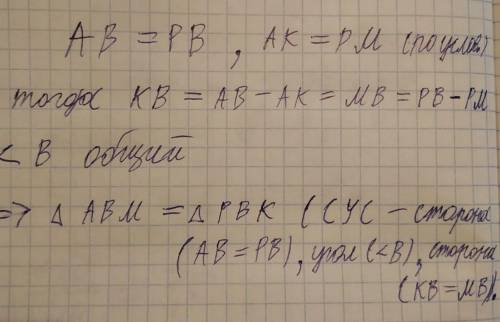 AB = PB , AK = PM (по услов.)
тогда KB = AB – AK = MB = PB – PM
< B общий
=> △ ABM = △ PBK (СУС – сторона
(AB = PB), угол (<B), сторона
(KB = MB)).